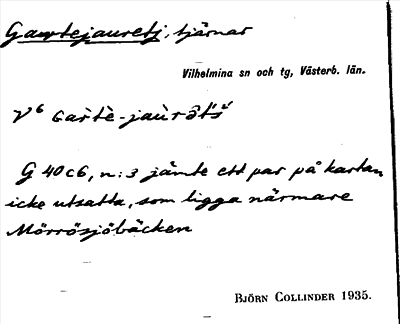 Gawtejauretj, tjärnar
Vilhelmina sn och tg, Västerb. län.
V⁶
G 40 c 6, n: 3 jämte ett par på kartan
icke utsatta, som ligga närmare
Mörrösjöbäcken
BJÖRN COLLINDER 1935.